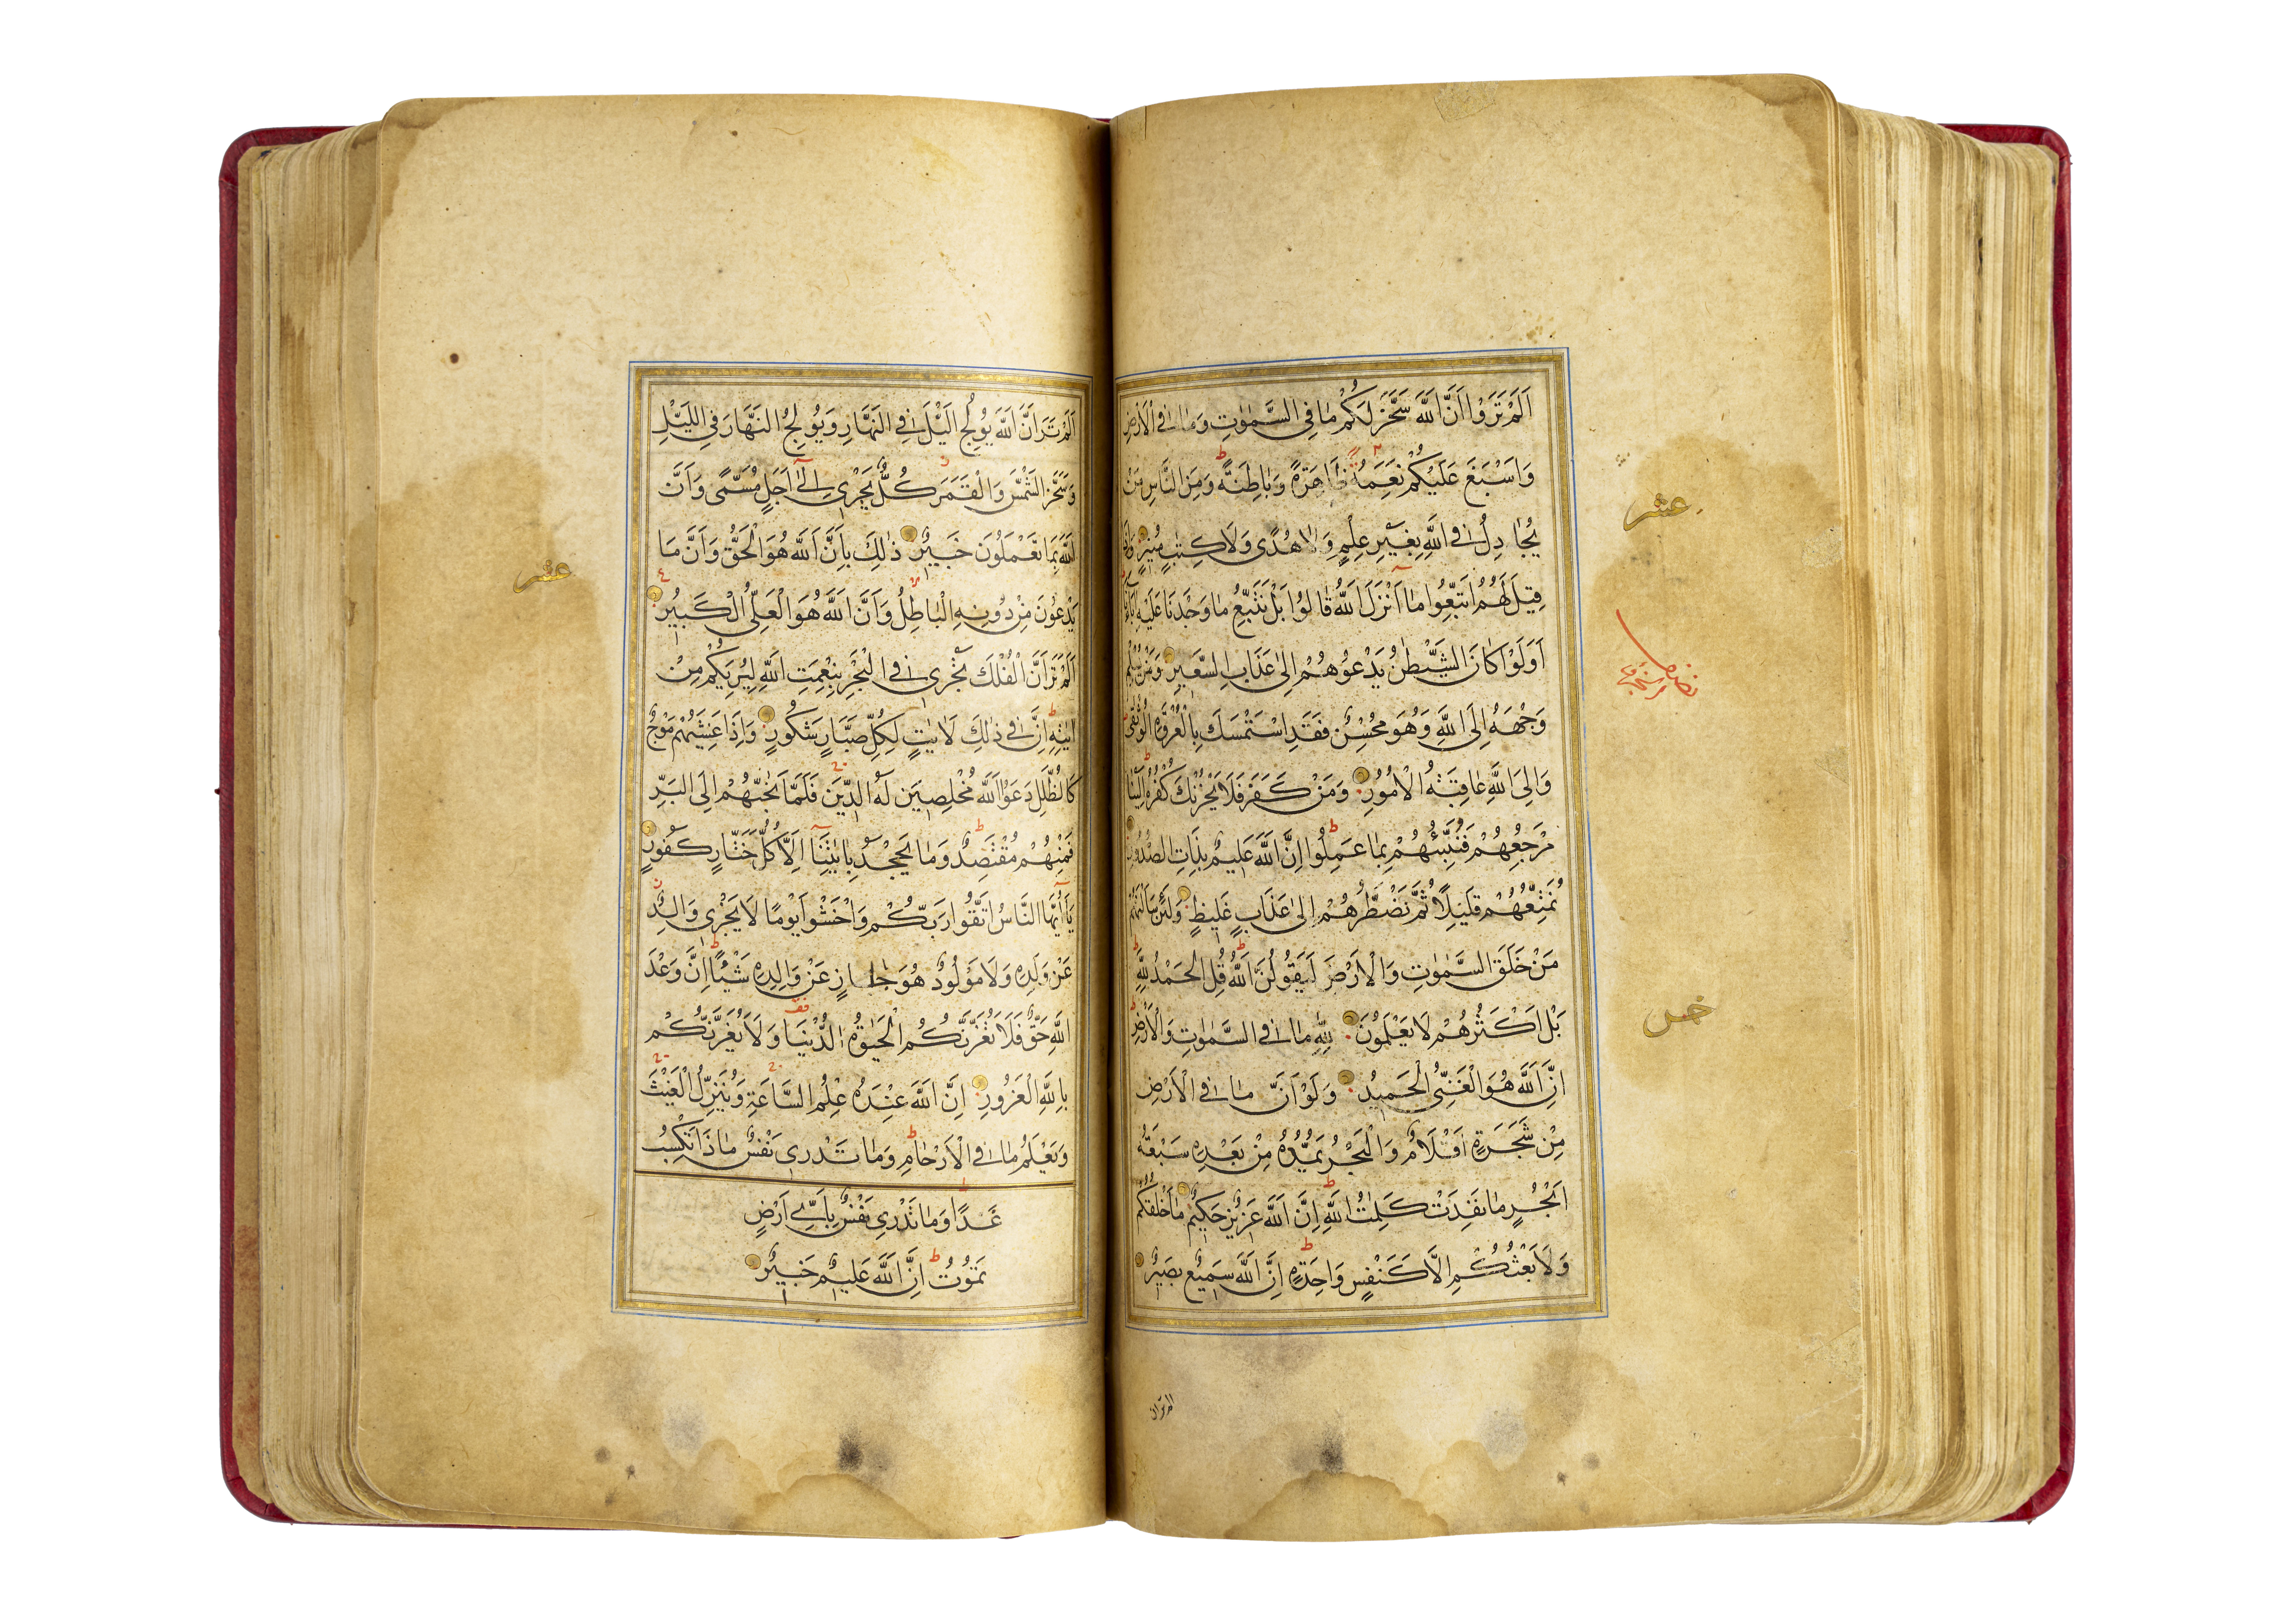 اَلَمْ تَرَوْا اَنَّ اللّٰهَ سَخَّرَ لَكُمْ مَا فِى السَّمٰوَاتِ وَمَا فِى الْاَرْضِ
وَاَسْبَغَ عَلَيْكُمْ نِعَمَهُ ظَاهِرَةً وَبَاطِنَةً وَمِنَ النَّاسِ مَنْ
يُجَادِلُ فِى اللّٰهِ بِغَيْرِ عِلْمٍ وَلَا هُدًى وَلَا كِتَابٍ مُنِيرٍ وَاِذَا
قِيلَ لَهُمُ اتَّبِعُوا مَا اَنْزَلَ اللّٰهُ قَالُوا بَلْ نَتَّبِعُ مَا وَجَدْنَا عَلَيْهِ اٰبَاءَنَا
اَوَلَوْ كَانَ الشَّيْطٰنُ يَدْعُوهُمْ اِلٰى عَذَابِ السَّعِيرِ وَمَنْ يُسْلِمْ
وَجْهَهُ اِلَى اللّٰهِ وَهُوَ مُحْسِنٌ فَقَدِ اسْتَمْسَكَ بِالْعُرْوَةِ الْوُثْقٰى
وَاِلَى اللّٰهِ عَاقِبَةُ الْاُمُورِ وَمَنْ كَفَرَ فَلَا يَحْزُنْكَ كُفْرُهُ اِلَيْنَا
مَرْجِعُهُمْ فَنُنَبِّئُهُمْ بِمَا عَمِلُوا اِنَّ اللّٰهَ عَلِيمٌ بِذَاتِ الصُّدُورِ
نُمَتِّعُهُمْ قَلِيلًا ثُمَّ نَضْطَرُّهُمْ اِلٰى عَذَابٍ غَلِيظٍ وَلَئِنْ سَاَلْتَهُمْ
مَنْ خَلَقَ السَّمٰوَاتِ وَالْاَرْضَ لَيَقُولُنَّ اللّٰهُ قُلِ الْحَمْدُ لِلّٰهِ
بَلْ اَكْثَرُهُمْ لَا يَعْلَمُونَ لِلّٰهِ مَا فِى السَّمٰوَاتِ وَالْاَرْضِ
اِنَّ اللّٰهَ هُوَ الْغَنِىُّ الْحَمِيدُ وَلَوْ اَنَّ مَا فِى الْاَرْضِ
مِنْ شَجَرَةٍ اَقْلَامٌ وَالْبَحْرُ يَمُدُّهُ مِنْ بَعْدِهِ سَبْعَةُ
اَبْحُرٍ مَا نَفِدَتْ كَلِمَاتُ اللّٰهِ اِنَّ اللّٰهَ عَزِيزٌ حَكِيمٌ مَا خَلْقُكُمْ
وَلَا بَعْثُكُمْ اِلَّا كَنَفْسٍ وَاحِدَةٍ اِنَّ اللّٰهَ سَمِيعٌ بَصِيرٌ
عشر
خمس
الم تر ان
اَلَمْ تَرَ اَنَّ اللّٰهَ يُولِجُ الَّيْلَ فِى النَّهَارِ وَيُولِجُ النَّهَارَ فِى اللَّيْلِ
وَسَخَّرَ الشَّمْسَ وَالْقَمَرَ كُلٌّ يَجْرِى اِلٰى اَجَلٍ مُسَمًّى وَاَنَّ
اللّٰهَ بِمَا تَعْمَلُونَ خَبِيرٌ ذٰلِكَ بِاَنَّ اللّٰهَ هُوَ الْحَقُّ وَاَنَّ مَا
يَدْعُونَ مِنْ دُونِهِ الْبَاطِلُ وَاَنَّ اللّٰهَ هُوَ الْعَلِىُّ الْكَبِيرُ
اَلَمْ تَرَ اَنَّ الْفُلْكَ تَجْرِى فِى الْبَحْرِ بِنِعْمَتِ اللّٰهِ لِيُرِيَكُمْ مِنْ
اٰيَاتِهِ اِنَّ فِى ذٰلِكَ لَاٰيَاتٍ لِكُلِّ صَبَّارٍ شَكُورٍ وَاِذَا غَشِيَهُمْ مَوْجٌ
كَالظُّلَلِ دَعَوُا اللّٰهَ مُخْلِصِينَ لَهُ الدِّينَ فَلَمَّا نَجّٰيهُمْ اِلَى الْبَرِّ
فَمِنْهُمْ مُقْتَصِدٌ وَمَا يَجْحَدُ بِاٰيَاتِنَا اِلَّا كُلُّ خَتَّارٍ كَفُورٍ
يَا اَيُّهَا النَّاسُ اتَّقُوا رَبَّكُمْ وَاخْشَوْا يَوْمًا لَا يَجْزِى وَالِدٌ
عَنْ وَلَدِهِ وَلَا مَوْلُودٌ هُوَ جَازٍ عَنْ وَالِدِهِ شَيْئًا اِنَّ وَعْدَ
اللّٰهِ حَقٌّ فَلَا تَغُرَّنَّكُمُ الْحَيٰوةُ الدُّنْيَا وَلَا يَغُرَّنَّكُمْ
بِاللّٰهِ الْغَرُورُ اِنَّ اللّٰهَ عِنْدَهُ عِلْمُ السَّاعَةِ وَيُنَزِّلُ الْغَيْثَ
وَيَعْلَمُ مَا فِى الْاَرْحَامِ وَمَا تَدْرِى نَفْسٌ مَاذَا تَكْسِبُ
غَدًا وَمَا تَدْرِى نَفْسٌ بِاَىِّ اَرْضٍ
تَمُوتُ اِنَّ اللّٰهَ عَلِيمٌ خَبِيرٌ
عشر